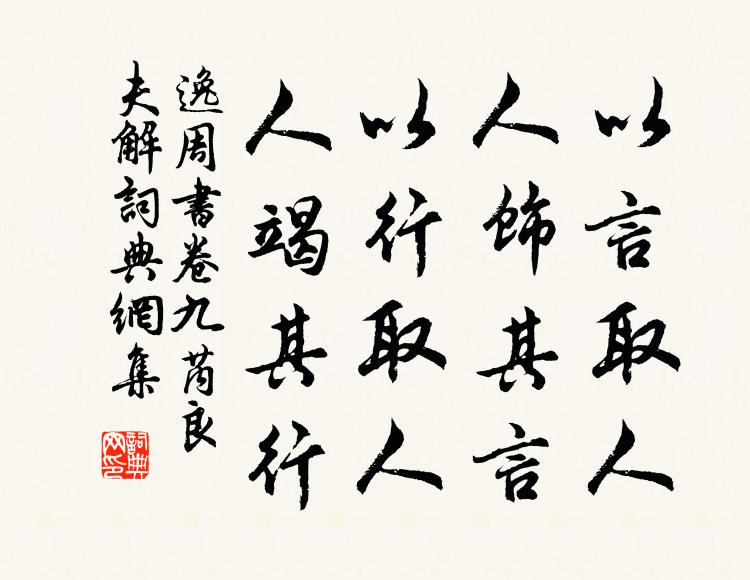 以言取人
人飾其言
以行取人
人竭其行
逸周書卷九芮良
夫解詞典網集
詞典
网印